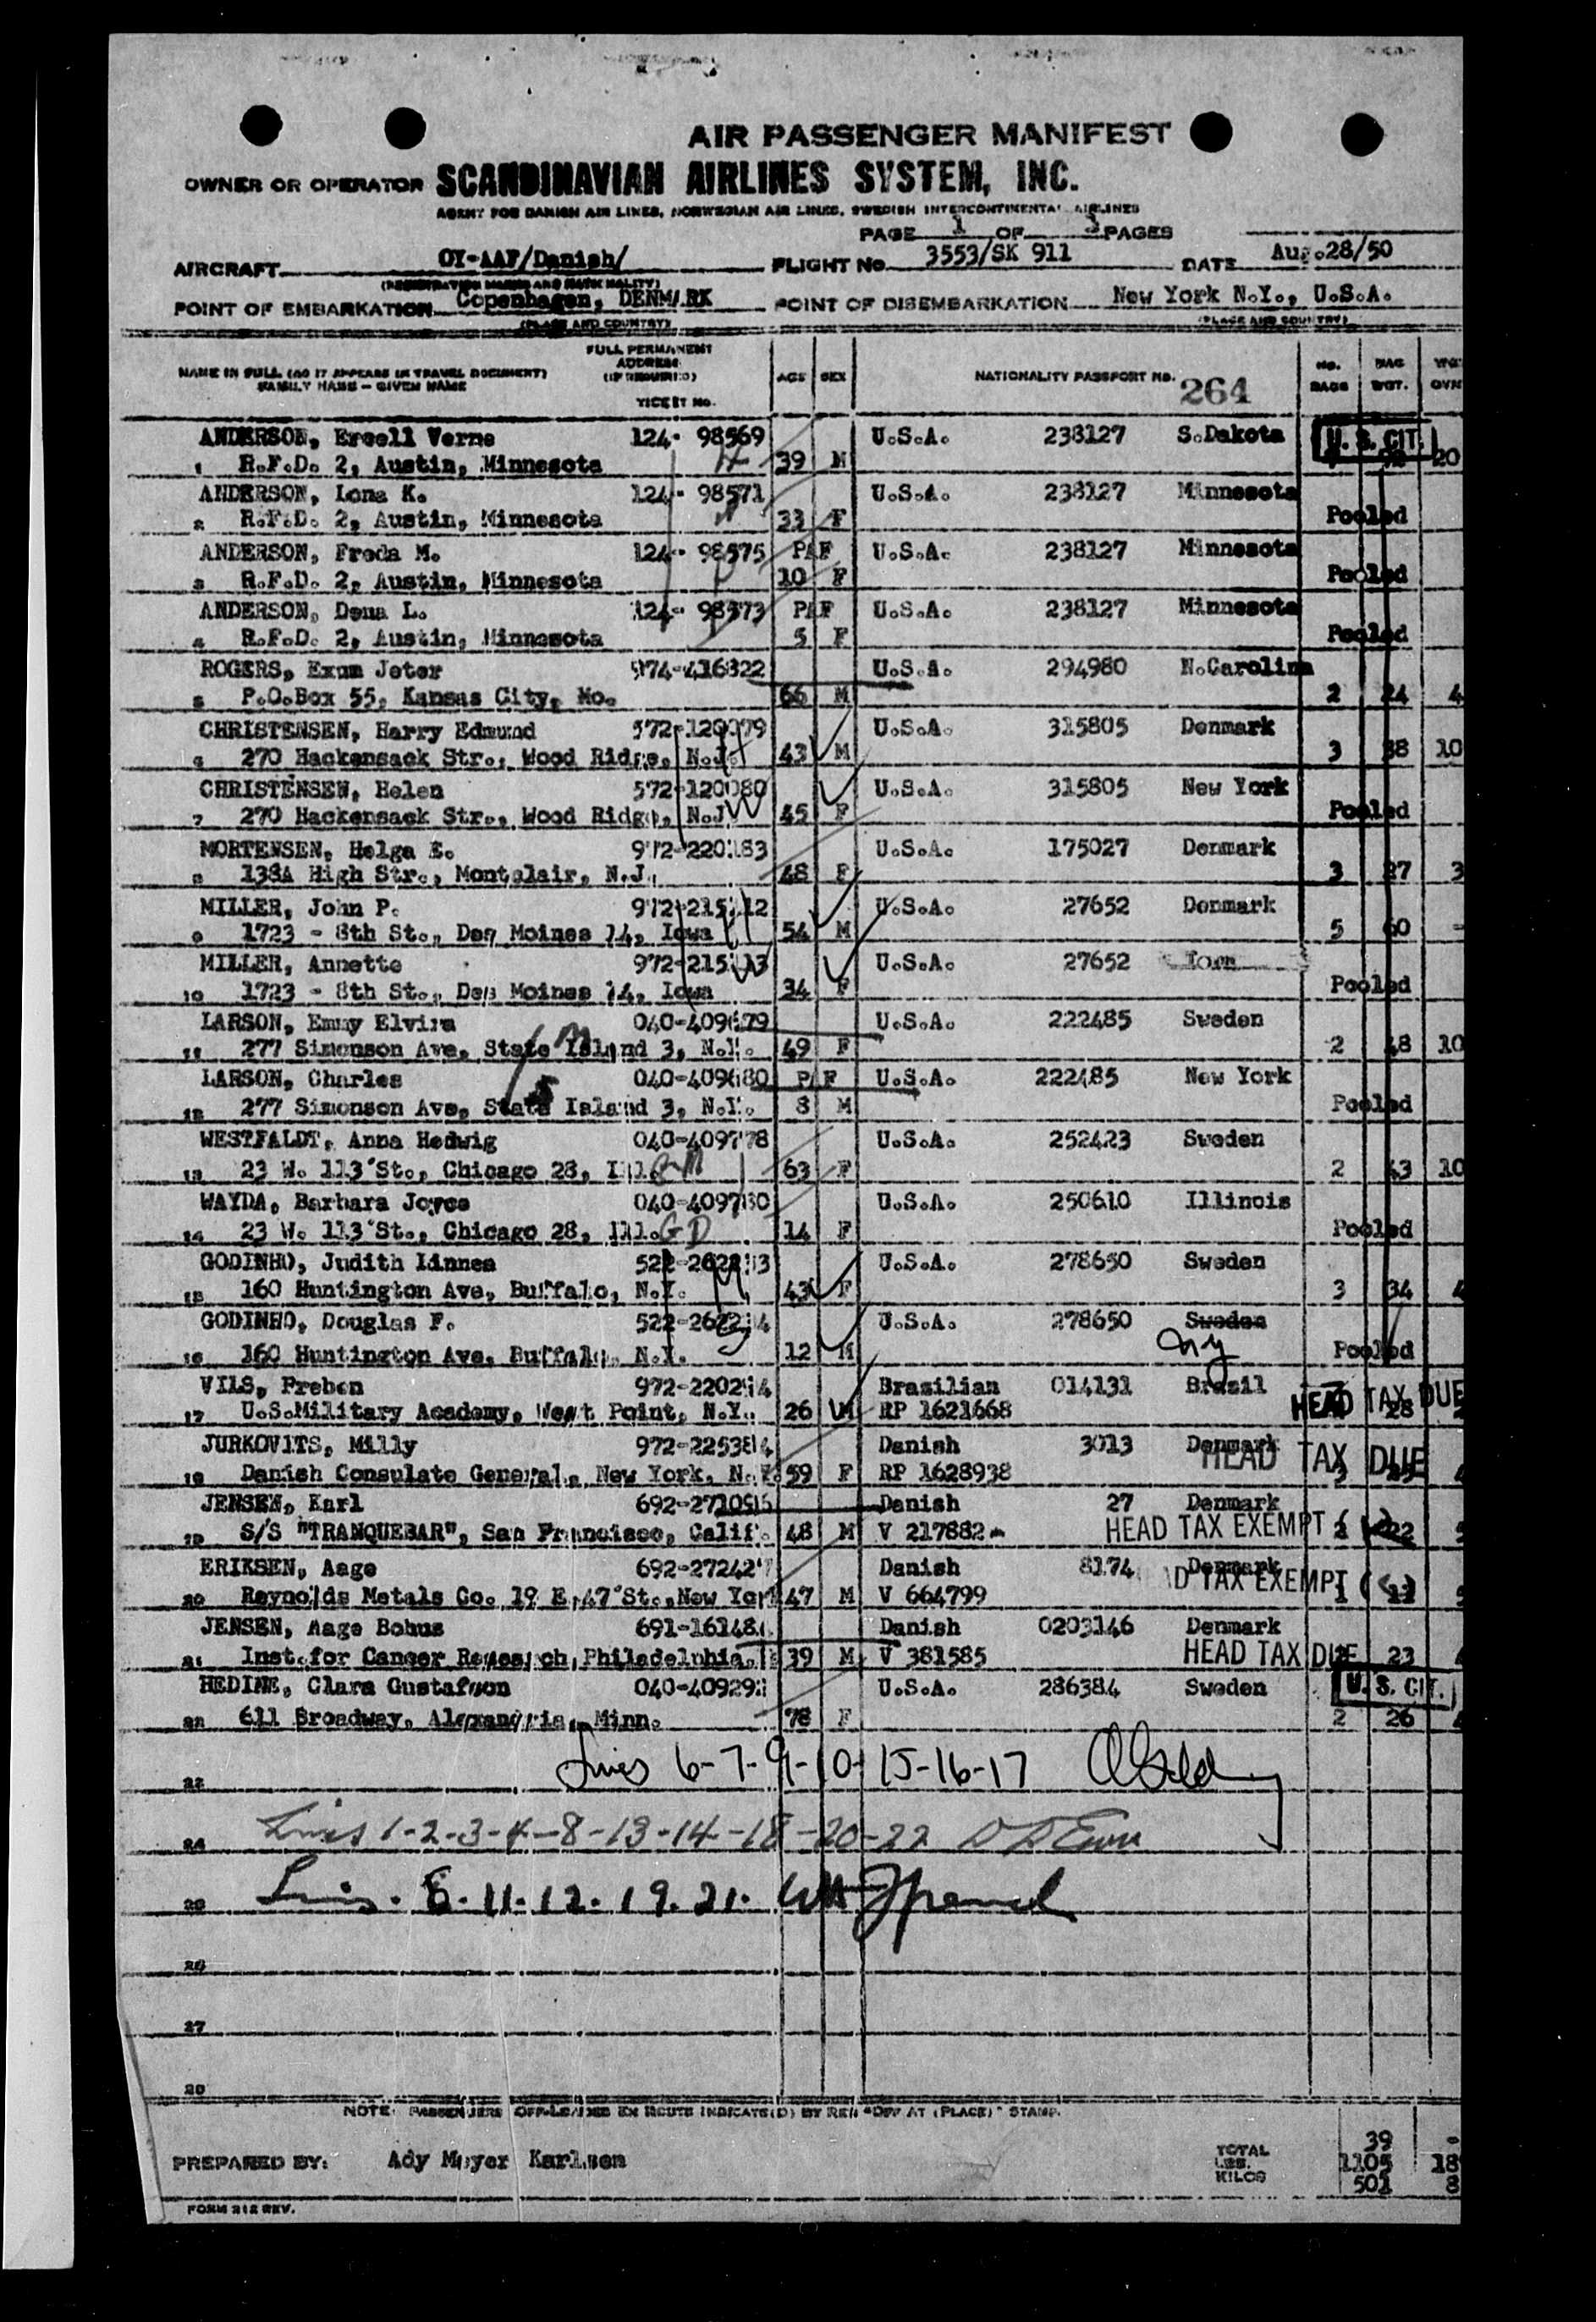 AIR PASSENGER MANIFEST
OWNER OR OPERATOR SCANDINAVIAN AIRLINES SYSTEM, INC.
AGENT FOR DANISH AIR LINES, NORWEGIAN AIR LINES, SWEDISH INTERCONTINENTAL AIRLINES
PAGE 1 OF 3 PAGES
AIRCRAFT OY-AAF/Danish/ FLIGHT No. 3553/SK 911 DATE Aug.28/50
(REGISTRATION MARKS AND NATIONALITY)
POINT OF EMBARKATION Copenhagen, DENMARK POINT OF DISEMBARKATION New York N.Y., U.S.A.
(PLACE AND COUNTRY) (PLACE AND COUNTRY)
NAME IN FULL (AS IT APPEARS IN TRAVEL DOCUMENT) FAMILY NAME - GIVEN NAME FULL PERMANENT ADDRESS (IF REQUIRED) TICKET NO. AGE SEX NATIONALITY PASSPORT NO. 264 NO. BAGS BAG WGT.
ANDERSON, Ercell Verne 124- 98569 U.S.A. 238127 S.Dakota U. S. CIT.
1 R.F.D. 2, Austin, Minnesota 39 M 20
ANDERSON, Lona K. 124- 98571 U.S.A. 238127 Minnesota
2 R.F.D. 2, Austin, Minnesota 33 F Pooled
ANDERSON, Freda M. 124- 98575 U.S.A. 238127 Minnesota
3 R.F.D. 2, Austin, Minnesota 10 F Pooled
ANDERSON, Dena L. 124- 98573 U.S.A. 238127 Minnesota
4 R.F.D. 2, Austin, Minnesota 5 F Pooled
ROGERS, Exum Jeter 974-416822 U.S.A. 294980 N.Carolina
5 P.O.Box 55, Kansas City, Mo. 66 M 2 24 4
CHRISTENSEN, Harry Edmund 572-120079 U.S.A. 315805 Denmark
6 270 Hackensack Str., Wood Ridge, N.J. 43 M 3 38 10
CHRISTENSEN, Helen 572-120080 U.S.A. 315805 New York
7 270 Hackensack Str., Wood Ridge, N.J. 45 F Pooled
MORTENSEN, Helga E. 972-220183 U.S.A. 175027 Denmark
8 138A High Str., Montclair, N.J. 48 F 3 27 3
MILLER, John P. 972-215112 U.S.A. 27652 Denmark
9 1723 - 8th St., Des Moines 14, Iowa 54 M 5 60 -
MILLER, Annette 972-215113 U.S.A. 27652 Iowa
10 1723 - 8th St., Des Moines 14, Iowa 34 F Pooled
LARSON, Emmy Elvira 040-409679 U.S.A. 222485 Sweden
11 277 Simonson Ave, State Island 3, N.Y. 49 F 2 48 10
LARSON, Charles 040-409680 U.S.A. 222485 New York
12 277 Simonson Ave, State Island 3, N.Y. 8 M Pooled
WESTFALDT, Anna Hedwig 040-409778 U.S.A. 252423 Sweden
13 23 W. 113'St., Chicago 28, Ill. 63 F 2 43 10
WAYDA, Barbara Joyce 040-409780 U.S.A. 250610 Illinois
14 23 W. 113'St., Chicago 28, Ill. GD 14 F Pooled
GODINHO, Judith Linnea U.S.A. 278650 Sweden
15 160 Huntington Ave, Buffalo, N.Y. 43 F 3 34 4
GODINHO, Douglas F. U.S.A. 278650 Sweden
16 160 Huntington Ave, Buffalo, N.Y. 12 M NY Pooled
VILS, Preben Brasilian 014131 Brasil HEAD TAX DUE
17 U.S.Military Academy, West Point, N.Y. 26 M RP 1621668 28
JURKOVITS, Milly 972-225384 Danish 3013 Denmark HEAD TAX DUE
18 Danish Consulate General, New York, N.Y. 59 F RP 1628938
JENSEN, Karl Danish 27 Denmark
19 S/S "TRANQUEBAR", San Francisco, Calif. 48 M V 217882 HEAD TAX EXEMPT 2 22
ERIKSEN, Aage 692-272427 Danish 8174 Denmark
20 Reynolds Metals Co. 19 E.47'St.,New York 47 M V 664799 HEAD TAX EXEMPT
JENSEN, Aage Bohus Danish 0203146 Denmark
21 Inst.for Cancer Research, Philadelphia, 39 M V 381585 HEAD TAX DUE 23
HEDINE, Clara Gustafson U.S.A. 286384 Sweden U. S. CIT.
22 611 Broadway, Alexandria, Minn. 78 F 2 26
Lines 6-7-9-10-15-16-17
24 Lines 1-2-3-4-8-13-14-18-20-22
Lines. 5.11.12.19.21.
26
27
28
NOTE: PASSENGERS OFF-LOADED EN ROUTE INDICATE(D) BY RED "OFF AT (PLACE)" STAMP.
PREPARED BY: Ady Meyer Karlsen TOTAL 39 -
LBS. 1105 18
KILOS 501 8
FORM 212 REV.